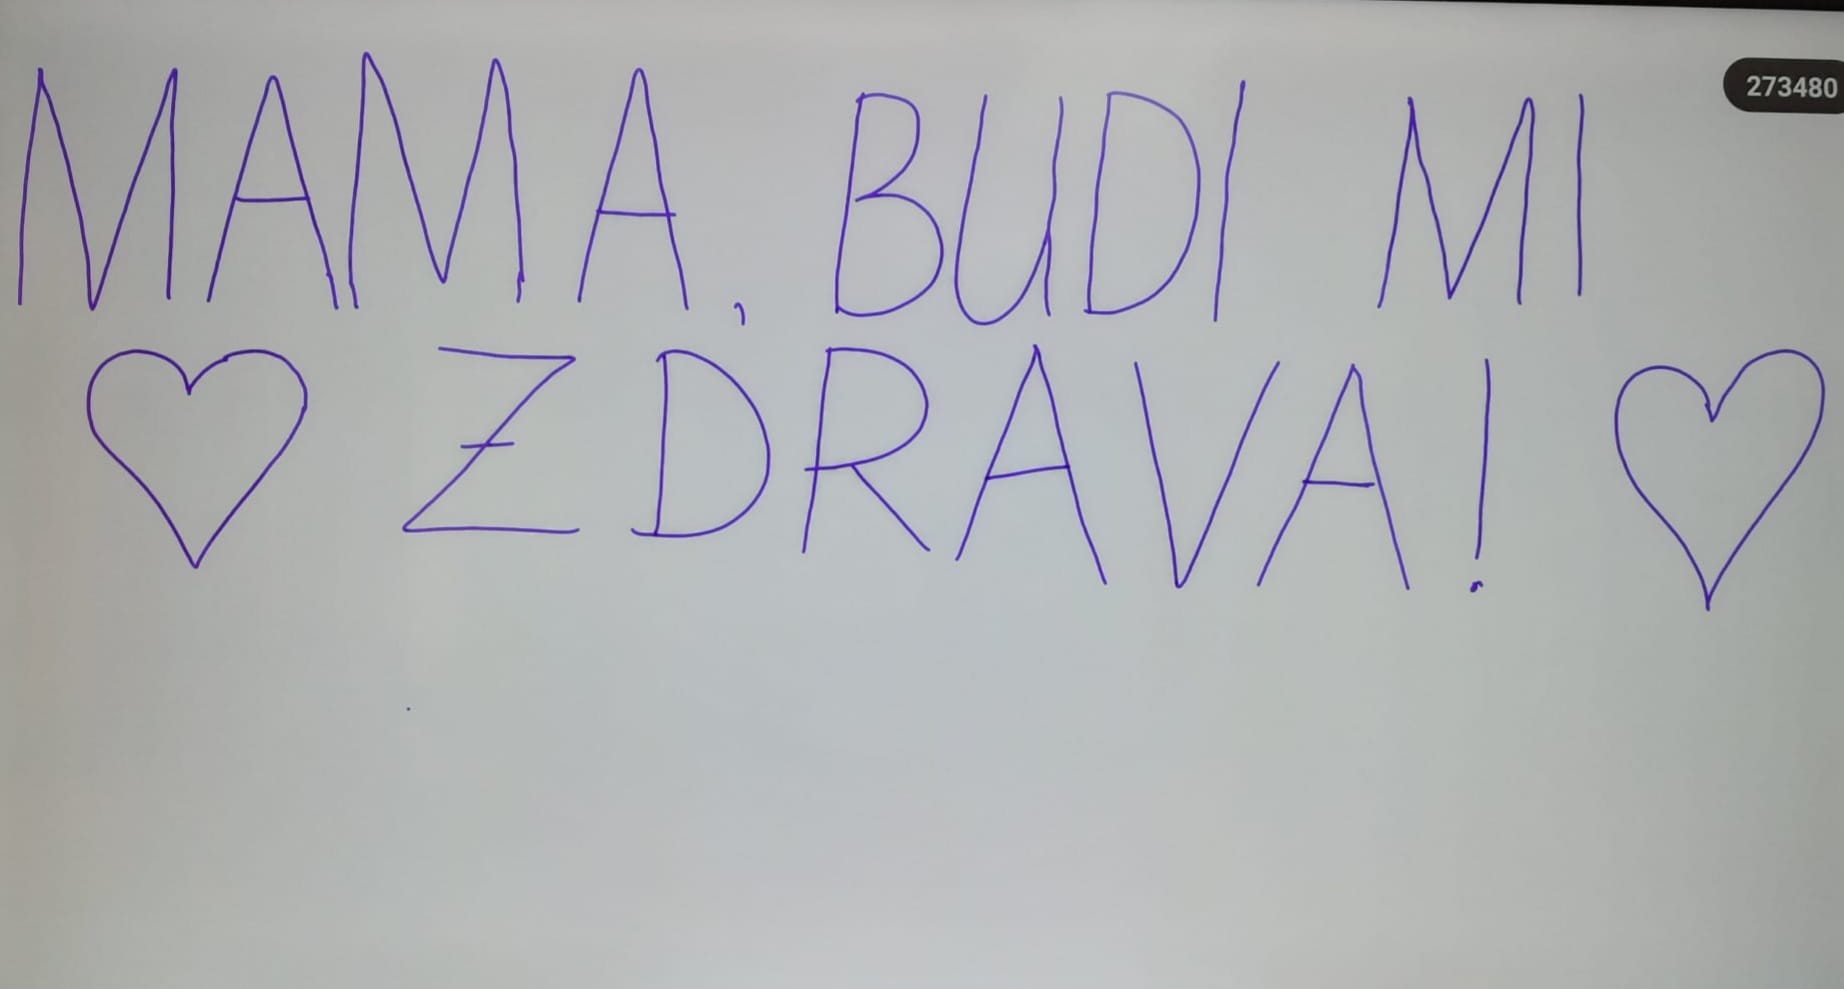 MAMA, BUDI MI
♡ ZDRAVA! ♡
273480